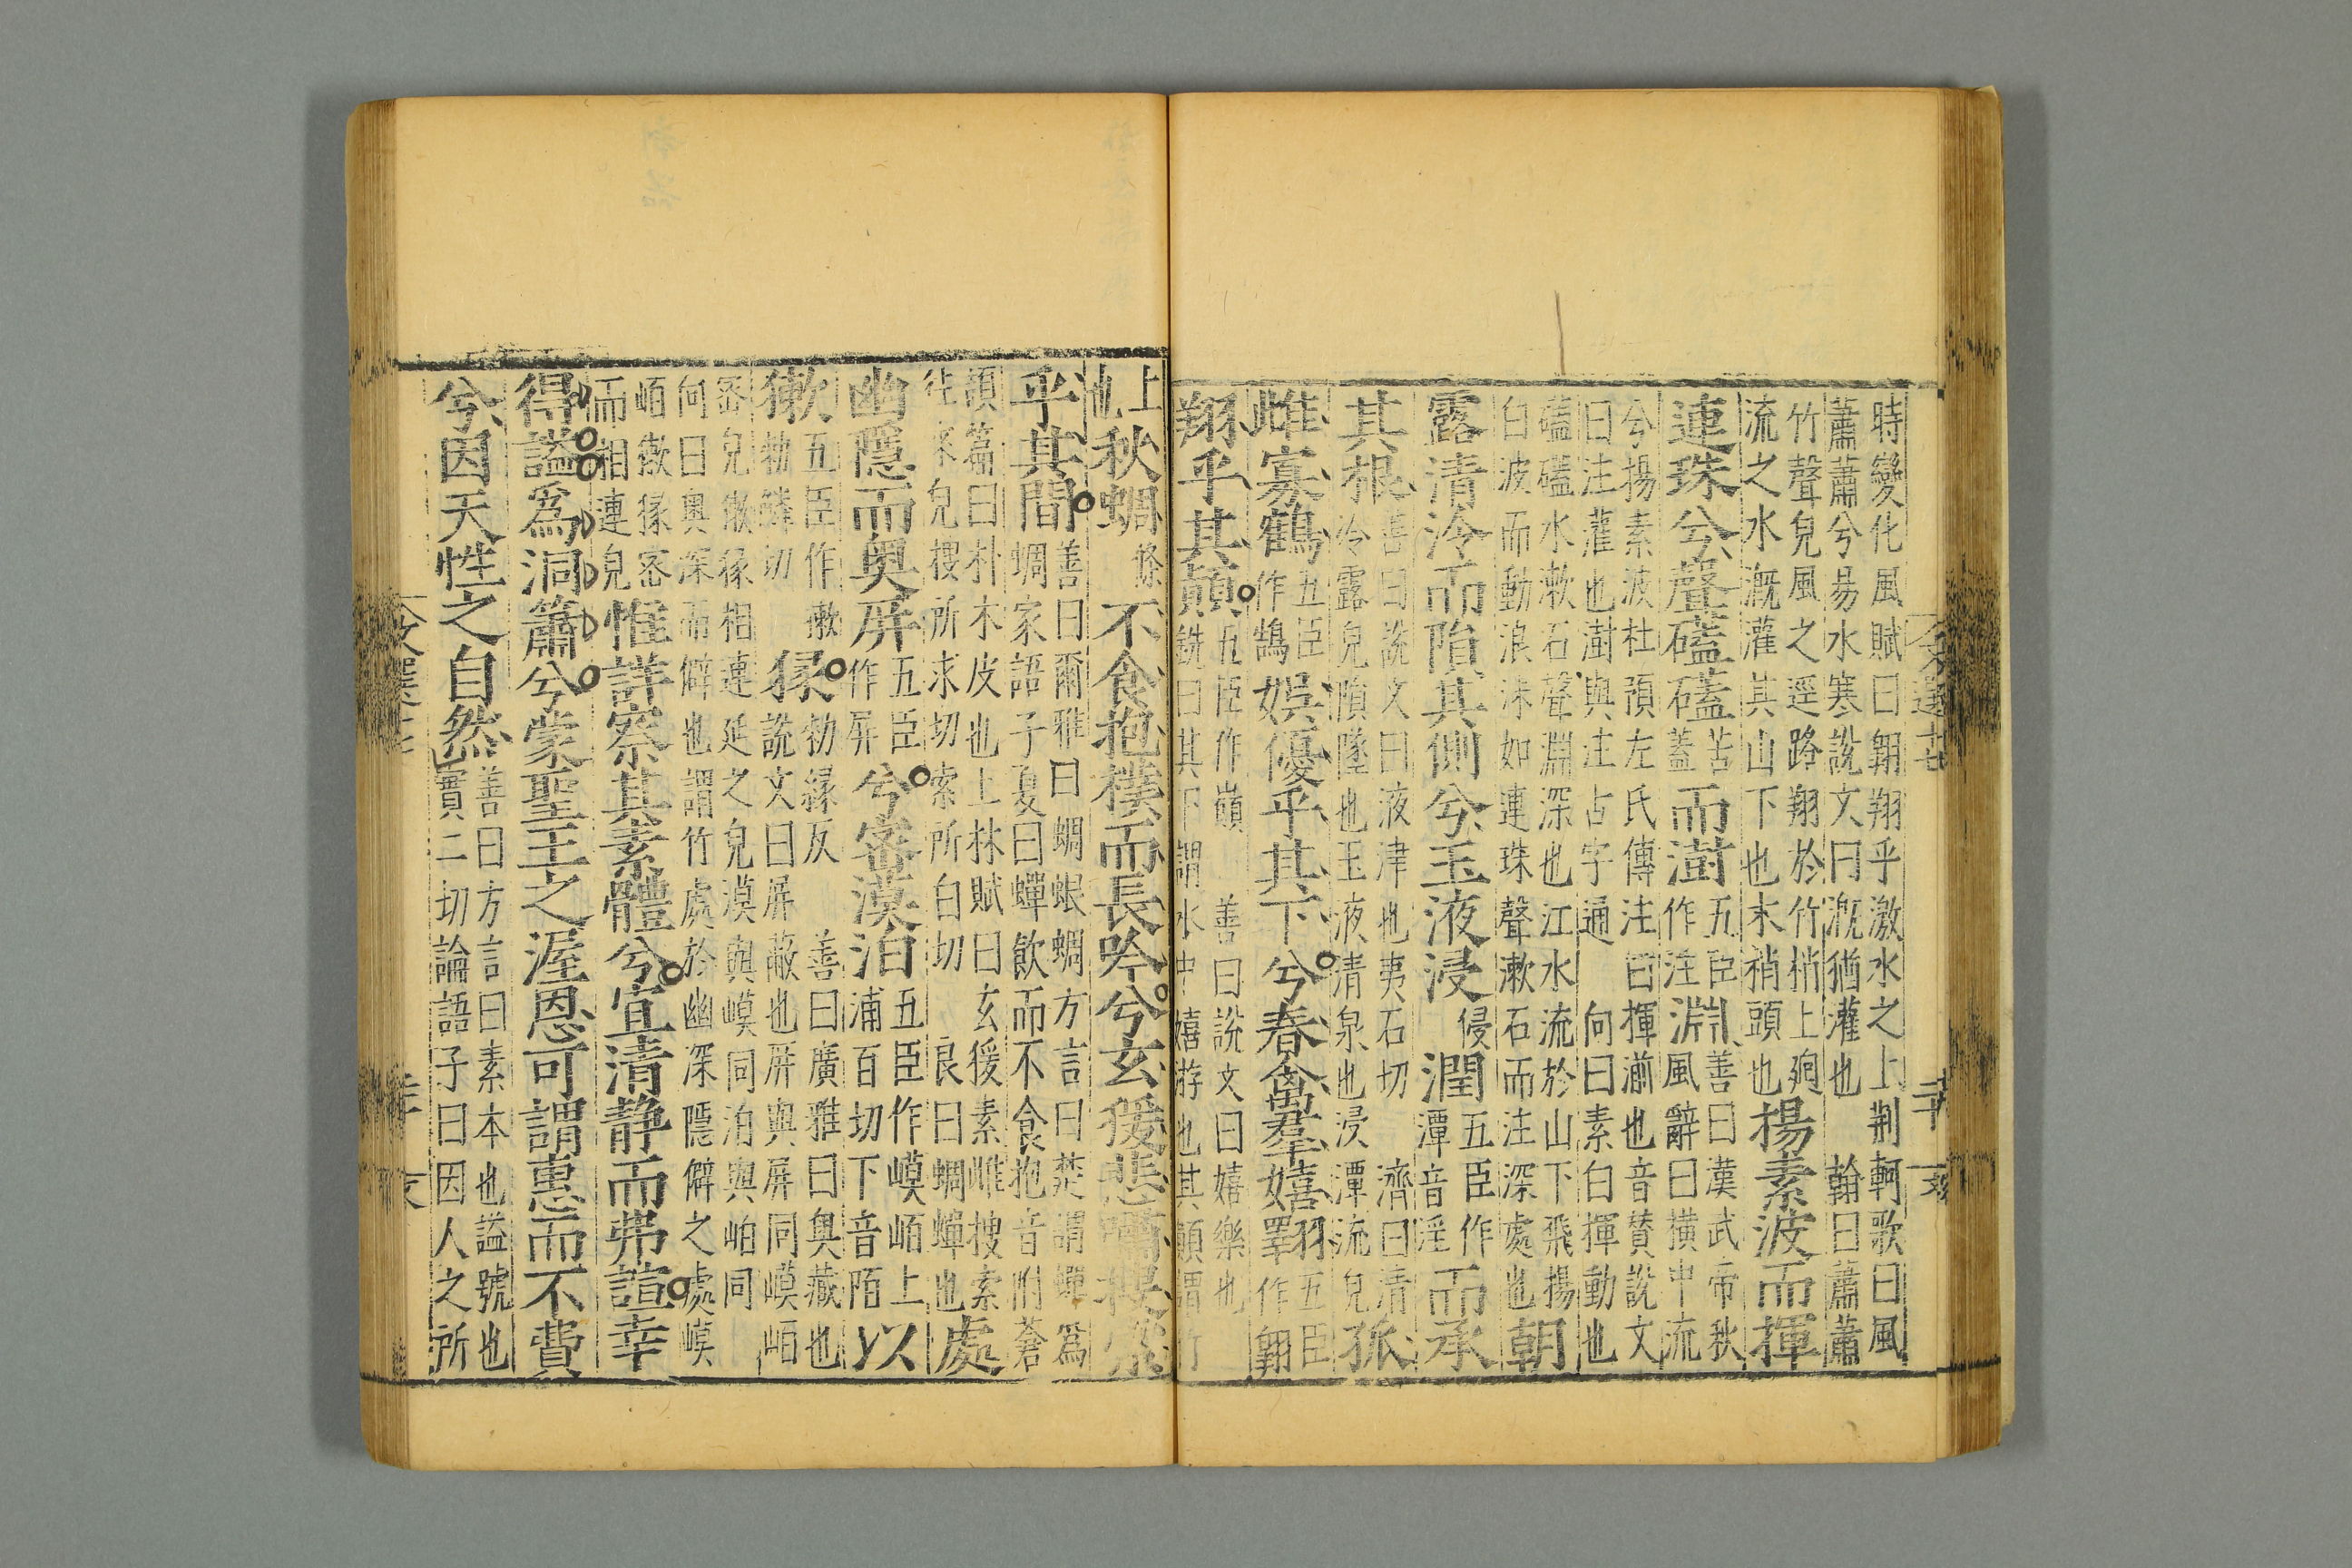 時變化風賦曰翶翔乎激水之上荆軻歌曰風
蕭蕭兮易水寒說文曰漑猶灌也 翰曰蕭蕭
竹聲皃風之逕路翔於竹梢上廻
流之水漑灌其山下也末稍頭也
揚素波而揮
連珠兮聲礚礚
苦蓋
而澍
五臣作注
淵
善曰漢武帝秋
風辭曰横中流
兮揚素波杜預左氏傳注曰揮湔也音賛說文
曰注灌也澍與注占字通 向曰素白揮動也
礚礚水漱石聲淵深也江水流於山下飛揚
白波而動浪沫如連珠聲漱石而注深處也
朝
露清泠而隕其側兮玉液浸
侵
潤
五臣作
潭音淫
而承
其根
善曰說文曰液津也夷石切 濟曰清
泠露皃隕墜也玉液清泉也浸潭流皃
孤
雌寡鶴
五臣
作鵠
娱優乎其下兮春禽羣嬉翏
五臣
作翶
翔乎其顛
五臣作巓 善曰說文曰嬉樂也
銑曰其下謂水中嬉游也其顛謂竹
上
也
秋蜩
條
不食抱樸而長吟兮玄猨悲嘯搜索
乎其間
善曰爾雅曰蜩蜋蜩方言曰楚謂蟬爲
蜩家語子夏曰蟬飲而不食抱音附蒼
頡篇曰朴木皮也上林賦曰玄猨素雌搜索
往來皃搜所求切索所白切 良曰蜩蟬也
處
幽隱而奥屏
五臣
作屏
兮密漠泊
五臣作嶼岶上
浦百切下音陌
以
獙
五臣作獙
勑隣切
猭
勑緣反 善曰廣雅曰奥藏也
說文曰屏蔽也屏與屏同嶼岶
密皃獙猭相連延之皃漠與嶼同泊與岶同
向曰奥深而僻也謂竹處於幽深隱僻之處嶼
岶獙猭密
而相連皃
惟詳察其素體兮宜清静而弗諠幸
得謚爲洞簫兮蒙聖王之渥恩可謂惠而不費
兮因天性之自然
善曰方言曰素本也謚號也
實二切論語子曰因人之所
文選十七
二十